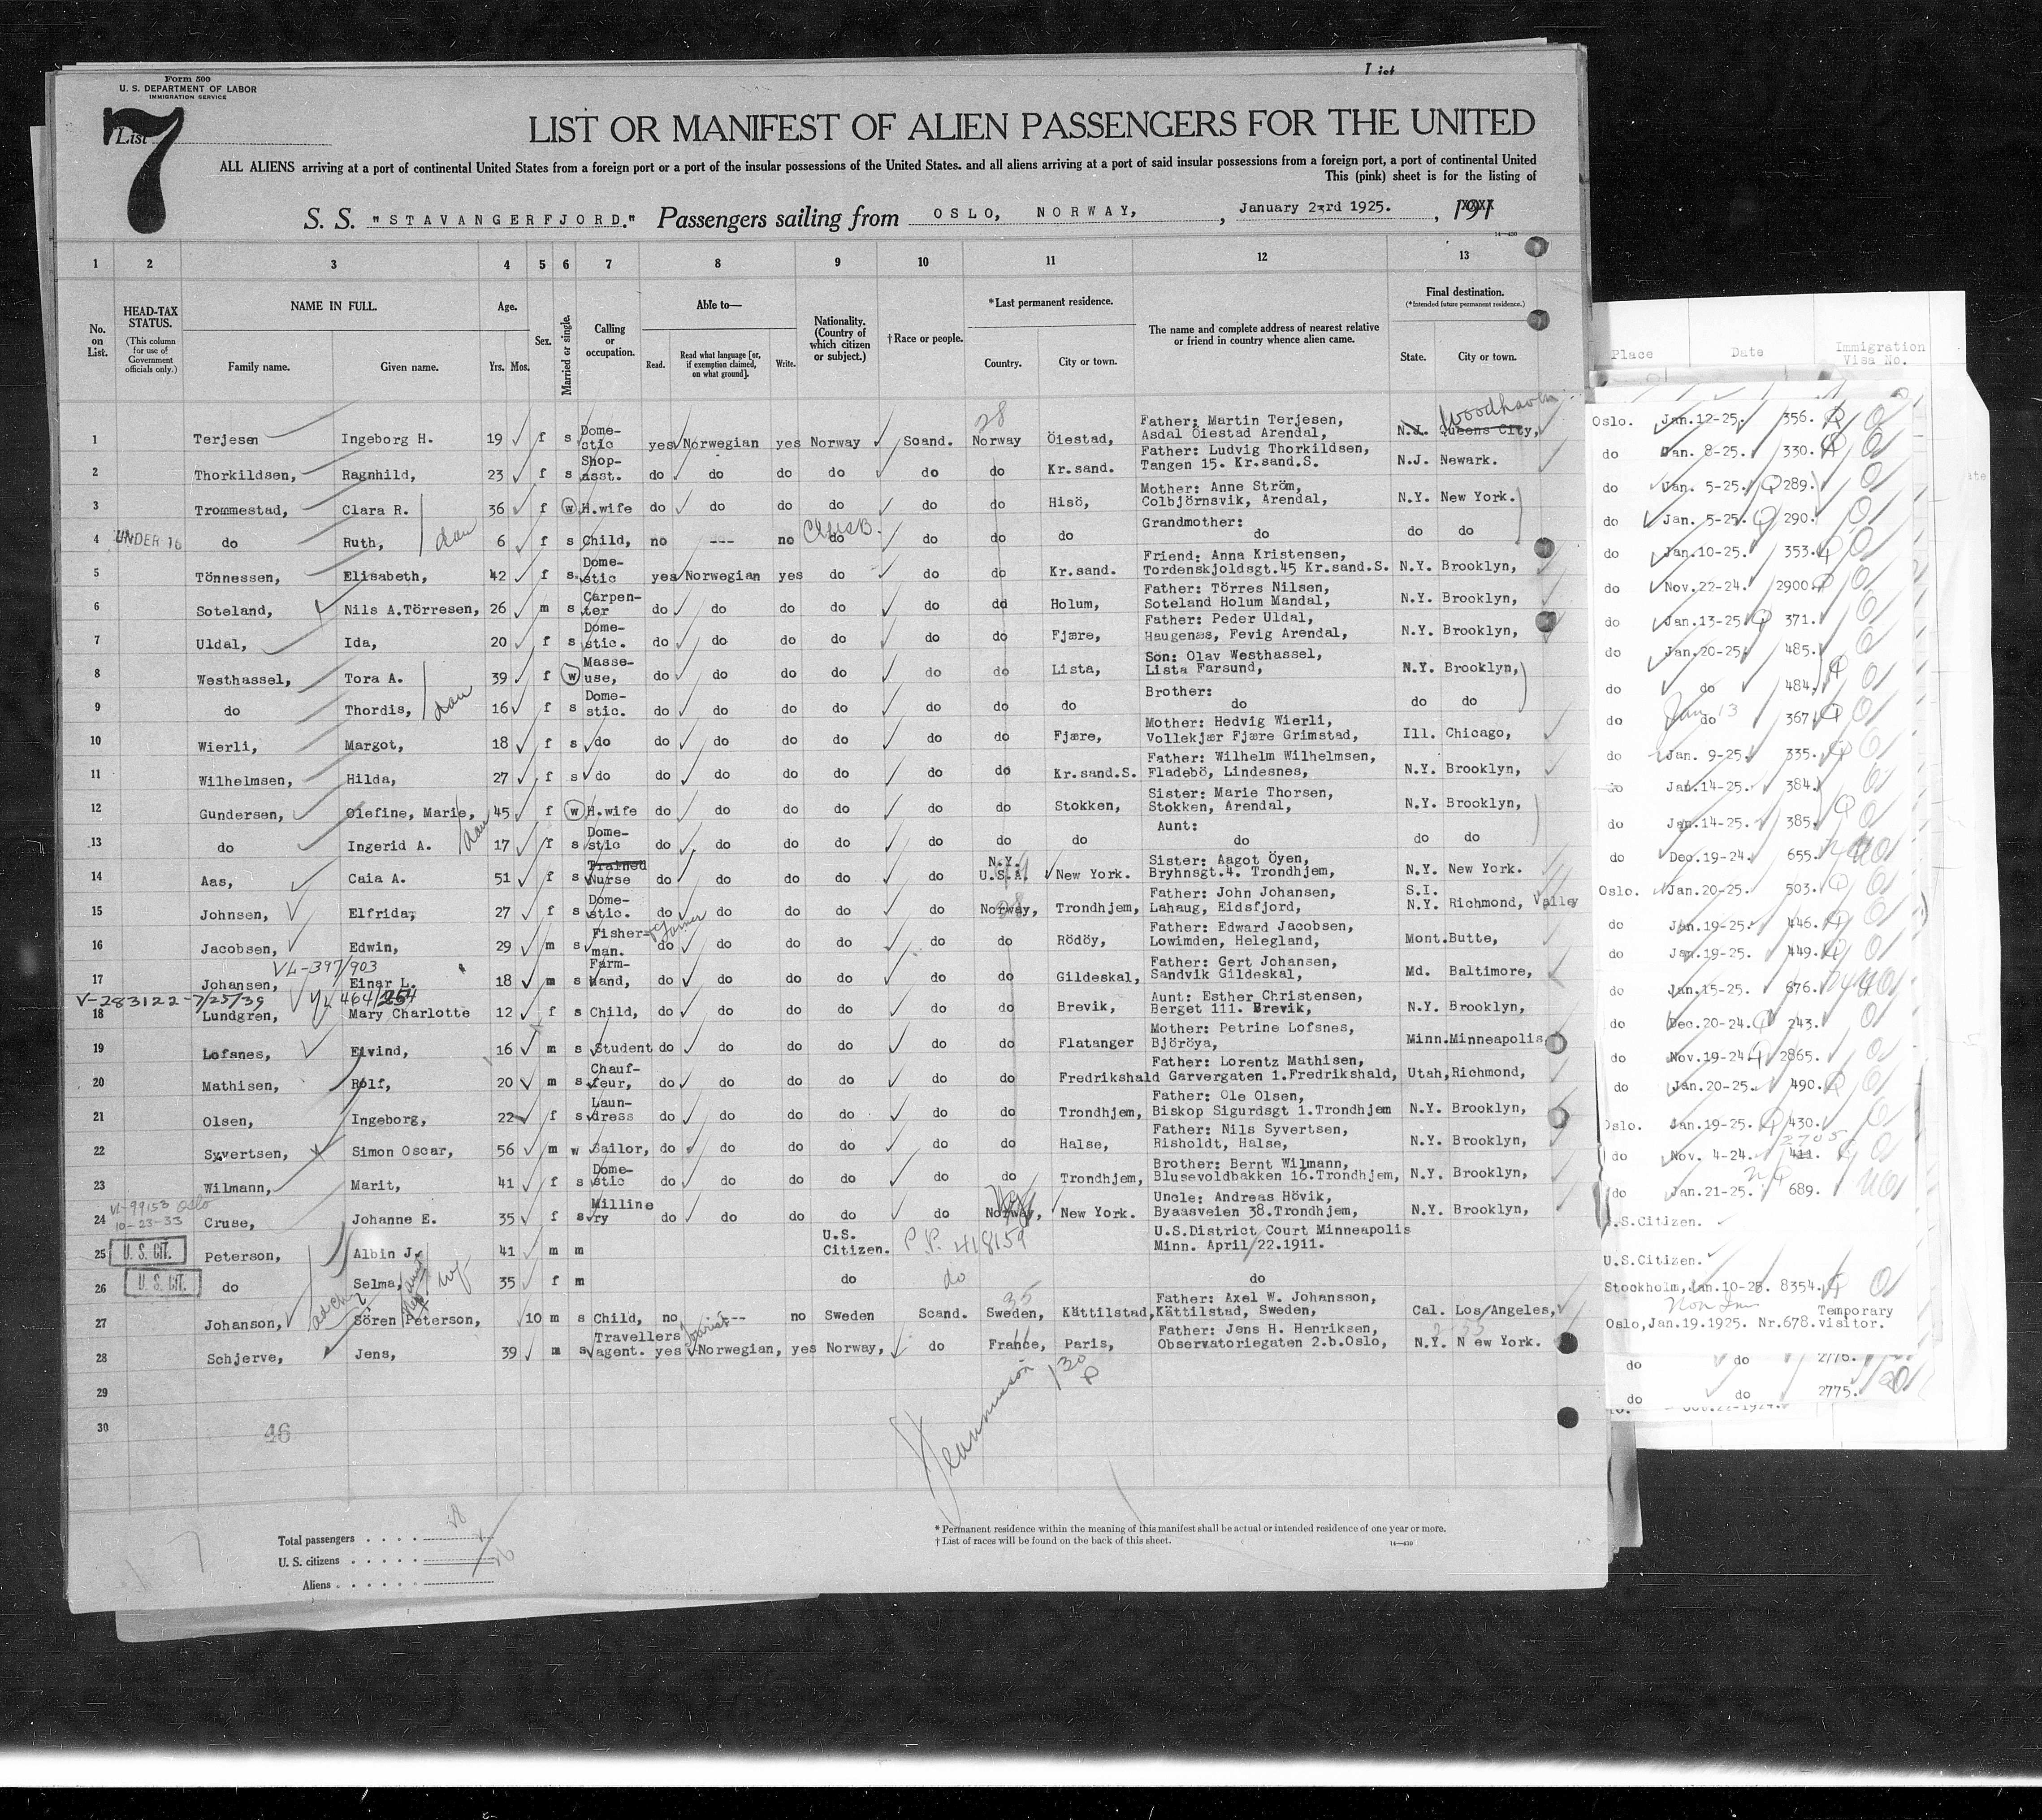 Form 500
U. S. DEPARTMENT OF LABOR
IMMIGRATION SERVICE
List
7
LIST OR MANIFEST OF ALIEN PASSENGERS FOR THE UNITED
ALL ALIENS arriving at a port of continental United States from a foreign port or a port of the insular possessions of the United States. and all aliens arriving at a port of said insular possessions from a foreign port, a port of continental United
This (pink) sheet is for the listing of
S. S. "STAVANGERFJORD." Passengers sailing from OSLO, NORWAY, , January 23rd 1925. , 191
14-430
1 2 3 4 5 6 7 8 9 10 11 12 13
No. on List. HEAD-TAX STATUS. (This column for use of Government officials only.) NAME IN FULL. Family name. Given name. Age. Yrs. Mos. Sex. Married or single. Calling or occupation. Able to— Read. Read what language [or, if exemption claimed, on what ground]. Write. Nationality. (Country of which citizen or subject.) †Race or people. *Last permanent residence. Country. City or town. The name and complete address of nearest relative or friend in country whence alien came. Final destination. (*Intended future permanent residence.) State. City or town.
Place Date Immigration Visa No.
28 Woodhaven
1 Terjesen Ingeborg H. 19 f s Domestic yes Norwegian yes Norway Scand. Norway Öiestad, Father: Martin Terjesen, Asdal Öiestad Arendal, N.J. Queens City, Oslo. Jan.12-25. 356.
2 Thorkildsen, Ragnhild, 23 f s Shop-asst. do do do do do do Kr.sand. Father: Ludvig Thorkildsen, Tangen 15. Kr.sand.S. N.J. Newark. do Jan. 8-25. 330.
3 Trommestad, Clara R. 36 f w H.wife do do do do do do Hisö, Mother: Anne Ström, Colbjörnsvik, Arendal, N.Y. New York. do Jan. 5-25. 289.
4 UNDER 16 do Ruth, dau 6 f s Child, no --- no do do do do Grandmother: do do do do Jan. 5-25. 290.
5 Tönnessen, Elisabeth, 42 f s Domestic yes Norwegian yes do do do Kr.sand. Friend: Anna Kristensen, Tordenskjoldsgt.45 Kr.sand.S. N.Y. Brooklyn, do Jan.10-25. 353.
6 Soteland, Nils A.Törresen, 26 m s Carpenter do do do do do do Holum, Father: Törres Nilsen, Soteland Holum Mandal, N.Y. Brooklyn, do Nov.22-24. 2900.
7 Uldal, Ida, 20 f s Domestic. do do do do do do Fjære, Father: Peder Uldal, Haugenæs, Fevig Arendal, N.Y. Brooklyn, do Jan.13-25 371.
8 Westhassel, Tora A. 39 f w Masseuse, do do do do do do Lista, Son: Olav Westhassel, Lista Farsund, N.Y. Brooklyn, do Jan.20-25 485.
9 do Thordis, dau 16 f s Domestic. do do do do do do do Brother: do do do do do 484.
10 Wierli, Margot, 18 f s do do do do do do do Fjære, Mother: Hedvig Wierli, Vollekjær Fjære Grimstad, Ill. Chicago, do do Jan 13 367.
11 Wilhelmsen, Hilda, 27 f s do do do do do do do Kr.sand.S. Father: Wilhelm Wilhelmsen, Fladebö, Lindesnes, N.Y. Brooklyn, do Jan. 9-25. 335.
12 Gundersen, Olefine, Marie, 45 f w H.wife do do do do do do Stokken, Sister: Marie Thorsen, Stokken, Arendal, N.Y. Brooklyn, do Jan.14-25. 384.
13 do Ingerid A. dau 17 f s Domestic do do do do do do do Aunt: do do do do Jan.14-25. 385.
14 Aas, Caia A. 51 f s Trained Nurse do do do do do N.Y. U.S.A. New York. Sister: Aagot Öyen, Bryhnsgt.4. Trondhjem, N.Y. New York. do Dec.19-24. 655.
15 Johnsen, Elfrida, 27 f s Domestic. do do do do do Norway, Trondhjem, Father: John Johansen, Lahaug, Eidsfjord, S.I. N.Y. Richmond, Valley Oslo. Jan.20-25. 503.
16 Jacobsen, Edwin, 29 m s Fisherman. farmer do do do do do do Rödöy, Father: Edward Jacobsen, Lowimden, Helegland, Mont.Butte, do Jan.19-25. 446.
VL-397/903
17 Johansen, Einar L. 18 m s Farmhand, do do do do do do Gildeskal, Father: Gert Johansen, Sandvik Gildeskal, Md. Baltimore, do Jan.19-25. 449.
V-283122-7/25/39 VL 464/254
18 Lundgren, Mary Charlotte 12 f s Child, do do do do do do Brevik, Aunt: Esther Christensen, Berget 111. Brevik, N.Y. Brooklyn, do Jan.15-25. 676.
19 Lofsnes, Eivind, 16 m s Student do do do do do do Flatanger Mother: Petrine Lofsnes, Björöya, Minn.Minneapolis do Dec.20-24. 243.
20 Mathisen, Rolf, 20 m s Chauffeur, do do do do do do Fredrikshald Father: Lorentz Mathisen, Garvergaten 1.Fredrikshald, Utah, Richmond, do Nov.19-24 2865.
21 Olsen, Ingeborg, 22 f s Laundress do do do do do do Trondhjem, Father: Ole Olsen, Biskop Sigurdsgt 1.Trondhjem N.Y. Brooklyn, do Jan.20-25. 490.
22 Syvertsen, Simon Oscar, 56 m w Sailor, do do do do do do Halse, Father: Nils Syvertsen, Risholdt, Halse, N.Y. Brooklyn, Oslo. Jan.19-25. 430.
23 Wilmann, Marit, 41 f s Domestic do do do do do do Trondhjem, Brother: Bernt Wilmann, Blusevoldbakken 16.Trondhjem, N.Y. Brooklyn, do Nov. 4-24. 411. 2705
VL-99153 Oslo 10-23-33
24 Cruse, Johanne E. 35 f s Millinery do do do do do Norway, New York. Uncle: Andreas Hövik, Byaasveien 38.Trondhjem, N.Y. Brooklyn, do Jan.21-25. 689.
25 U. S. CIT. Peterson, Albin J. 41 m m U.S. Citizen. P.P. 418159 U.S.District Court Minneapolis Minn. April/22.1911. U.S.Citizen.
26 U. S. CIT. do Selma, wf 35 f m do do do U.S.Citizen.
27 Johanson, Sören Peterson, 10 m s Child, no --- no Sweden Scand. Sweden, Kättilstad, Father: Axel W. Johansson, Kättilstad, Sweden, Cal. Los Angeles, Stockholm, Jan.10-25. 8354.
28 Schjerve, Jens, 39 m s Travellers agent. tourist yes Norwegian, yes Norway, do France, Paris, Father: Jens H. Henriksen, Observatoriegaten 2.b.Oslo, N.Y. New York. Oslo, Jan.19.1925. Nr.678. Temporary visitor.
29 do do 2776.
30 do do 2775.
46
Total passengers
U. S. citizens
Aliens
* Permanent residence within the meaning of this manifest shall be actual or intended residence of one year or more.
† List of races will be found on the back of this sheet.
14-430